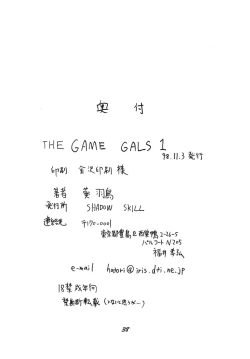 奥付
THE GAME GALS 1
98.11.3 発行
印刷 金沢印刷 様
著者 黄 羽鳥
発行所 SHADOW SKILL
連絡先 〒170-0001
東京都豊島区西巣鴨 2-26-5
パルコート N205
e-mail hatori@iris.dti.ne.jp
18禁
禁無断転載
88